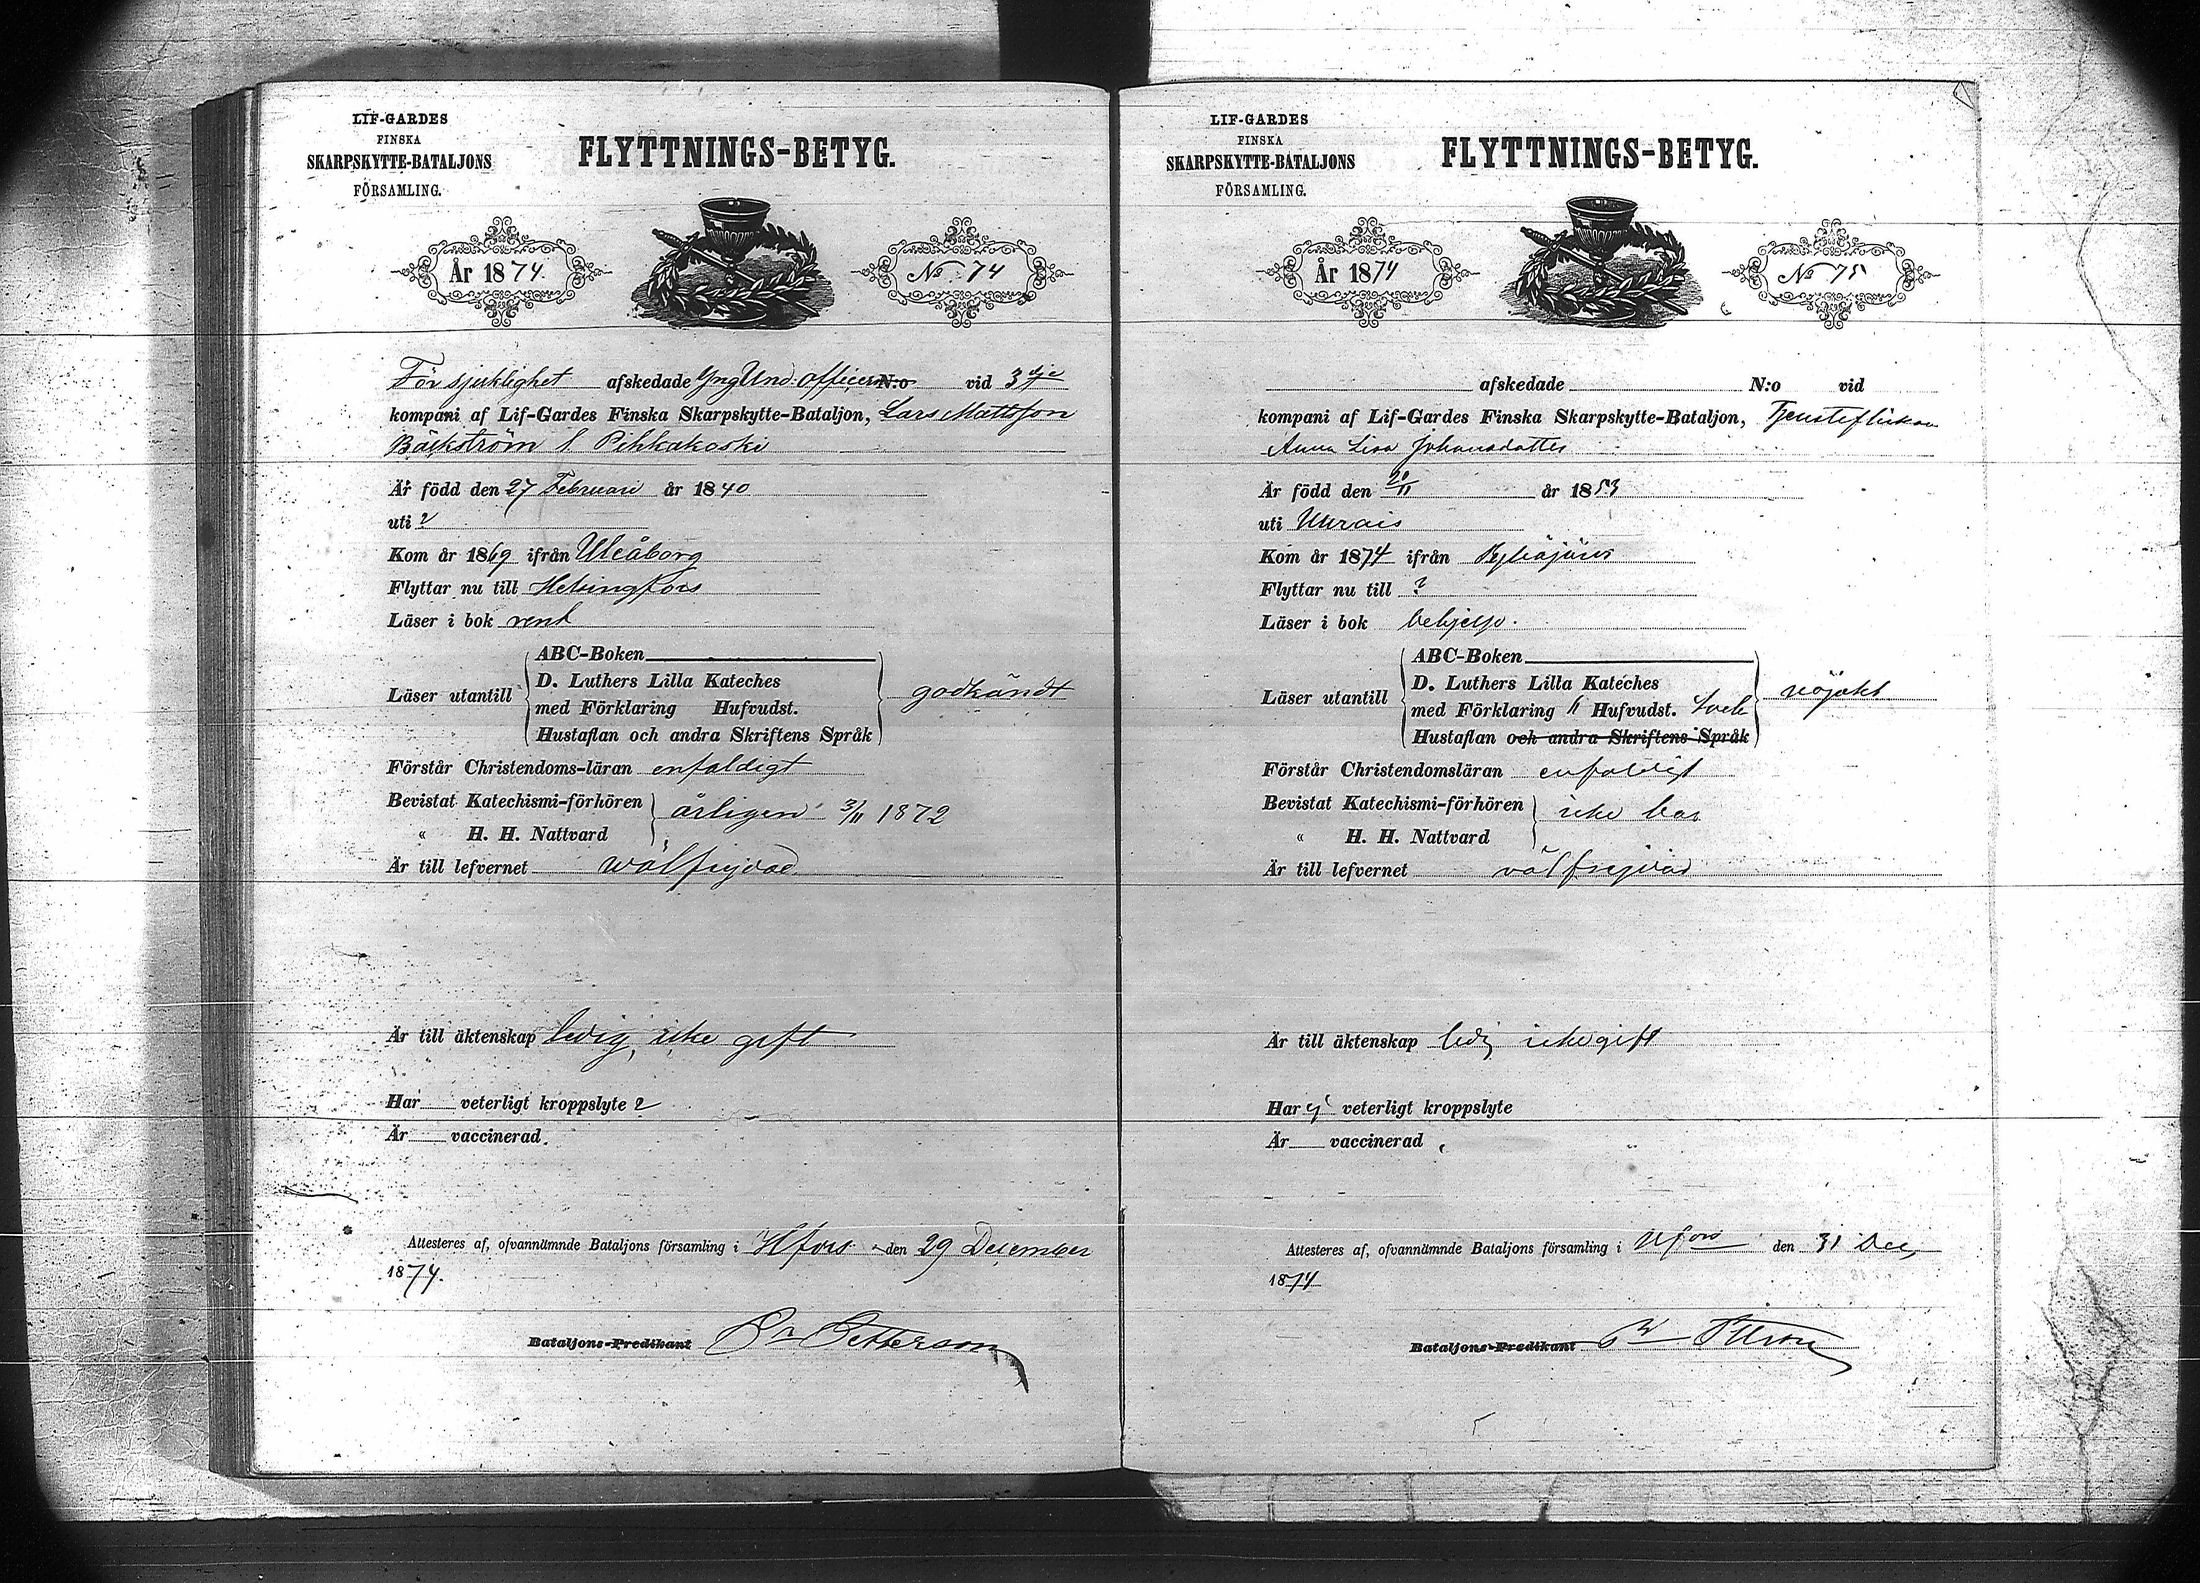 LIF-GARDES
FINSKA
SKARPSKYTTE-BATALJONS
FÖRSAMLING.
FLYTTNINGS-BETYG.
År 1874.
No 74
För sjuklighet afskedade Yng Und. officern N:o vid 3dje
kompani af Lif-Gardes Finska Skarpskytte-Bataljon, Lars Mattsson
Bäckström l. Pehkakoski
Är född den 27 Februari år 1840
uti ?
Kom år 1869 ifrån Uleåborg
Flyttar nu till Helsingfors
Läser i bok rent
ABC-Boken
D. Luthers Lilla Kateches
Läser utantill godkändt
med Förklaring Hufvudst.
Hustaflan och andra Skriftens Språk
Förstår Christendoms-läran enfaldigt
Bevistat Katechismi-förhören årligen 3/11 1872
« H. H. Nattvard
Är till lefvernet wälfrejdad
Är till äktenskap ledig, icke gift
Har veterligt kroppslyte ?
Är vaccinerad.
Attesteres af, ofvannämnde Bataljons församling i Hfors den 29 December
1874.
Bataljons-Predikant Petterson
LIF-GARDES
FINSKA
SKARPSKYTTE-BATALJONS
FÖRSAMLING.
FLYTTNINGS-BETYG.
År 1874
No 75
afskedade N:o vid
kompani af Lif-Gardes Finska Skarpskytte-Bataljon, Tjensteflickan
Anna Lisa Johansdotter
Är född den 20/11 år 1853
uti Uurais
Kom år 1874 ifrån Pyhäjärvi
Flyttar nu till ?
Läser i bok behjelpl.
ABC-Boken
D. Luthers Lilla Kateches
Läser utantill nöjakt
med Förklaring II Hufvudst.
Hustaflan och andra Skriftens Språk
Förstår Christendomsläran enfaldigt
Bevistat Katechismi-förhören icke här
« H. H. Nattvard
Är till lefvernet välfrejdad
Är till äktenskap ledig icke gift
Har ej veterligt kroppslyte
Är vaccinerad
Attesteres af, ofvannämnde Bataljons församling i Hfors den 31 Dec,
1874
Bataljons-Predikant